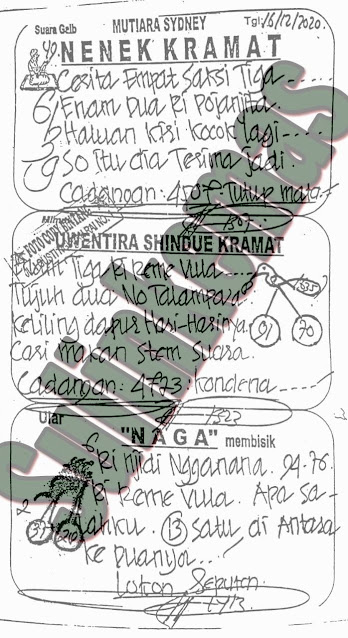 Suara Gelb MUTIARA SYDNEY Tgl; 16/12/2020.
NENEK KRAMAT
Cerita Empat Saksi Tiga
Enam Dua Ri Pojanjita.
Haluan Kiri Kocok lagi
So itu dia Terima jadi.
Cadangan: 4507 Tutup mata
1507.
UWENTIRA SHINDUE KRAMAT
Tiga Ri Reme Vula
Tujuh dua No Palampara
Keliling dapur Hari-Harinya.
Cari makan Stem Suara.
91 70
Cadangan: 4723: Kondena
1523
Ular "NAGA" membisik
Ri Hidi Ngganana. 94-76.
Ri Reme Vula. Apa sa-
lahku. 13 satu di Antara
Ke Duanya...